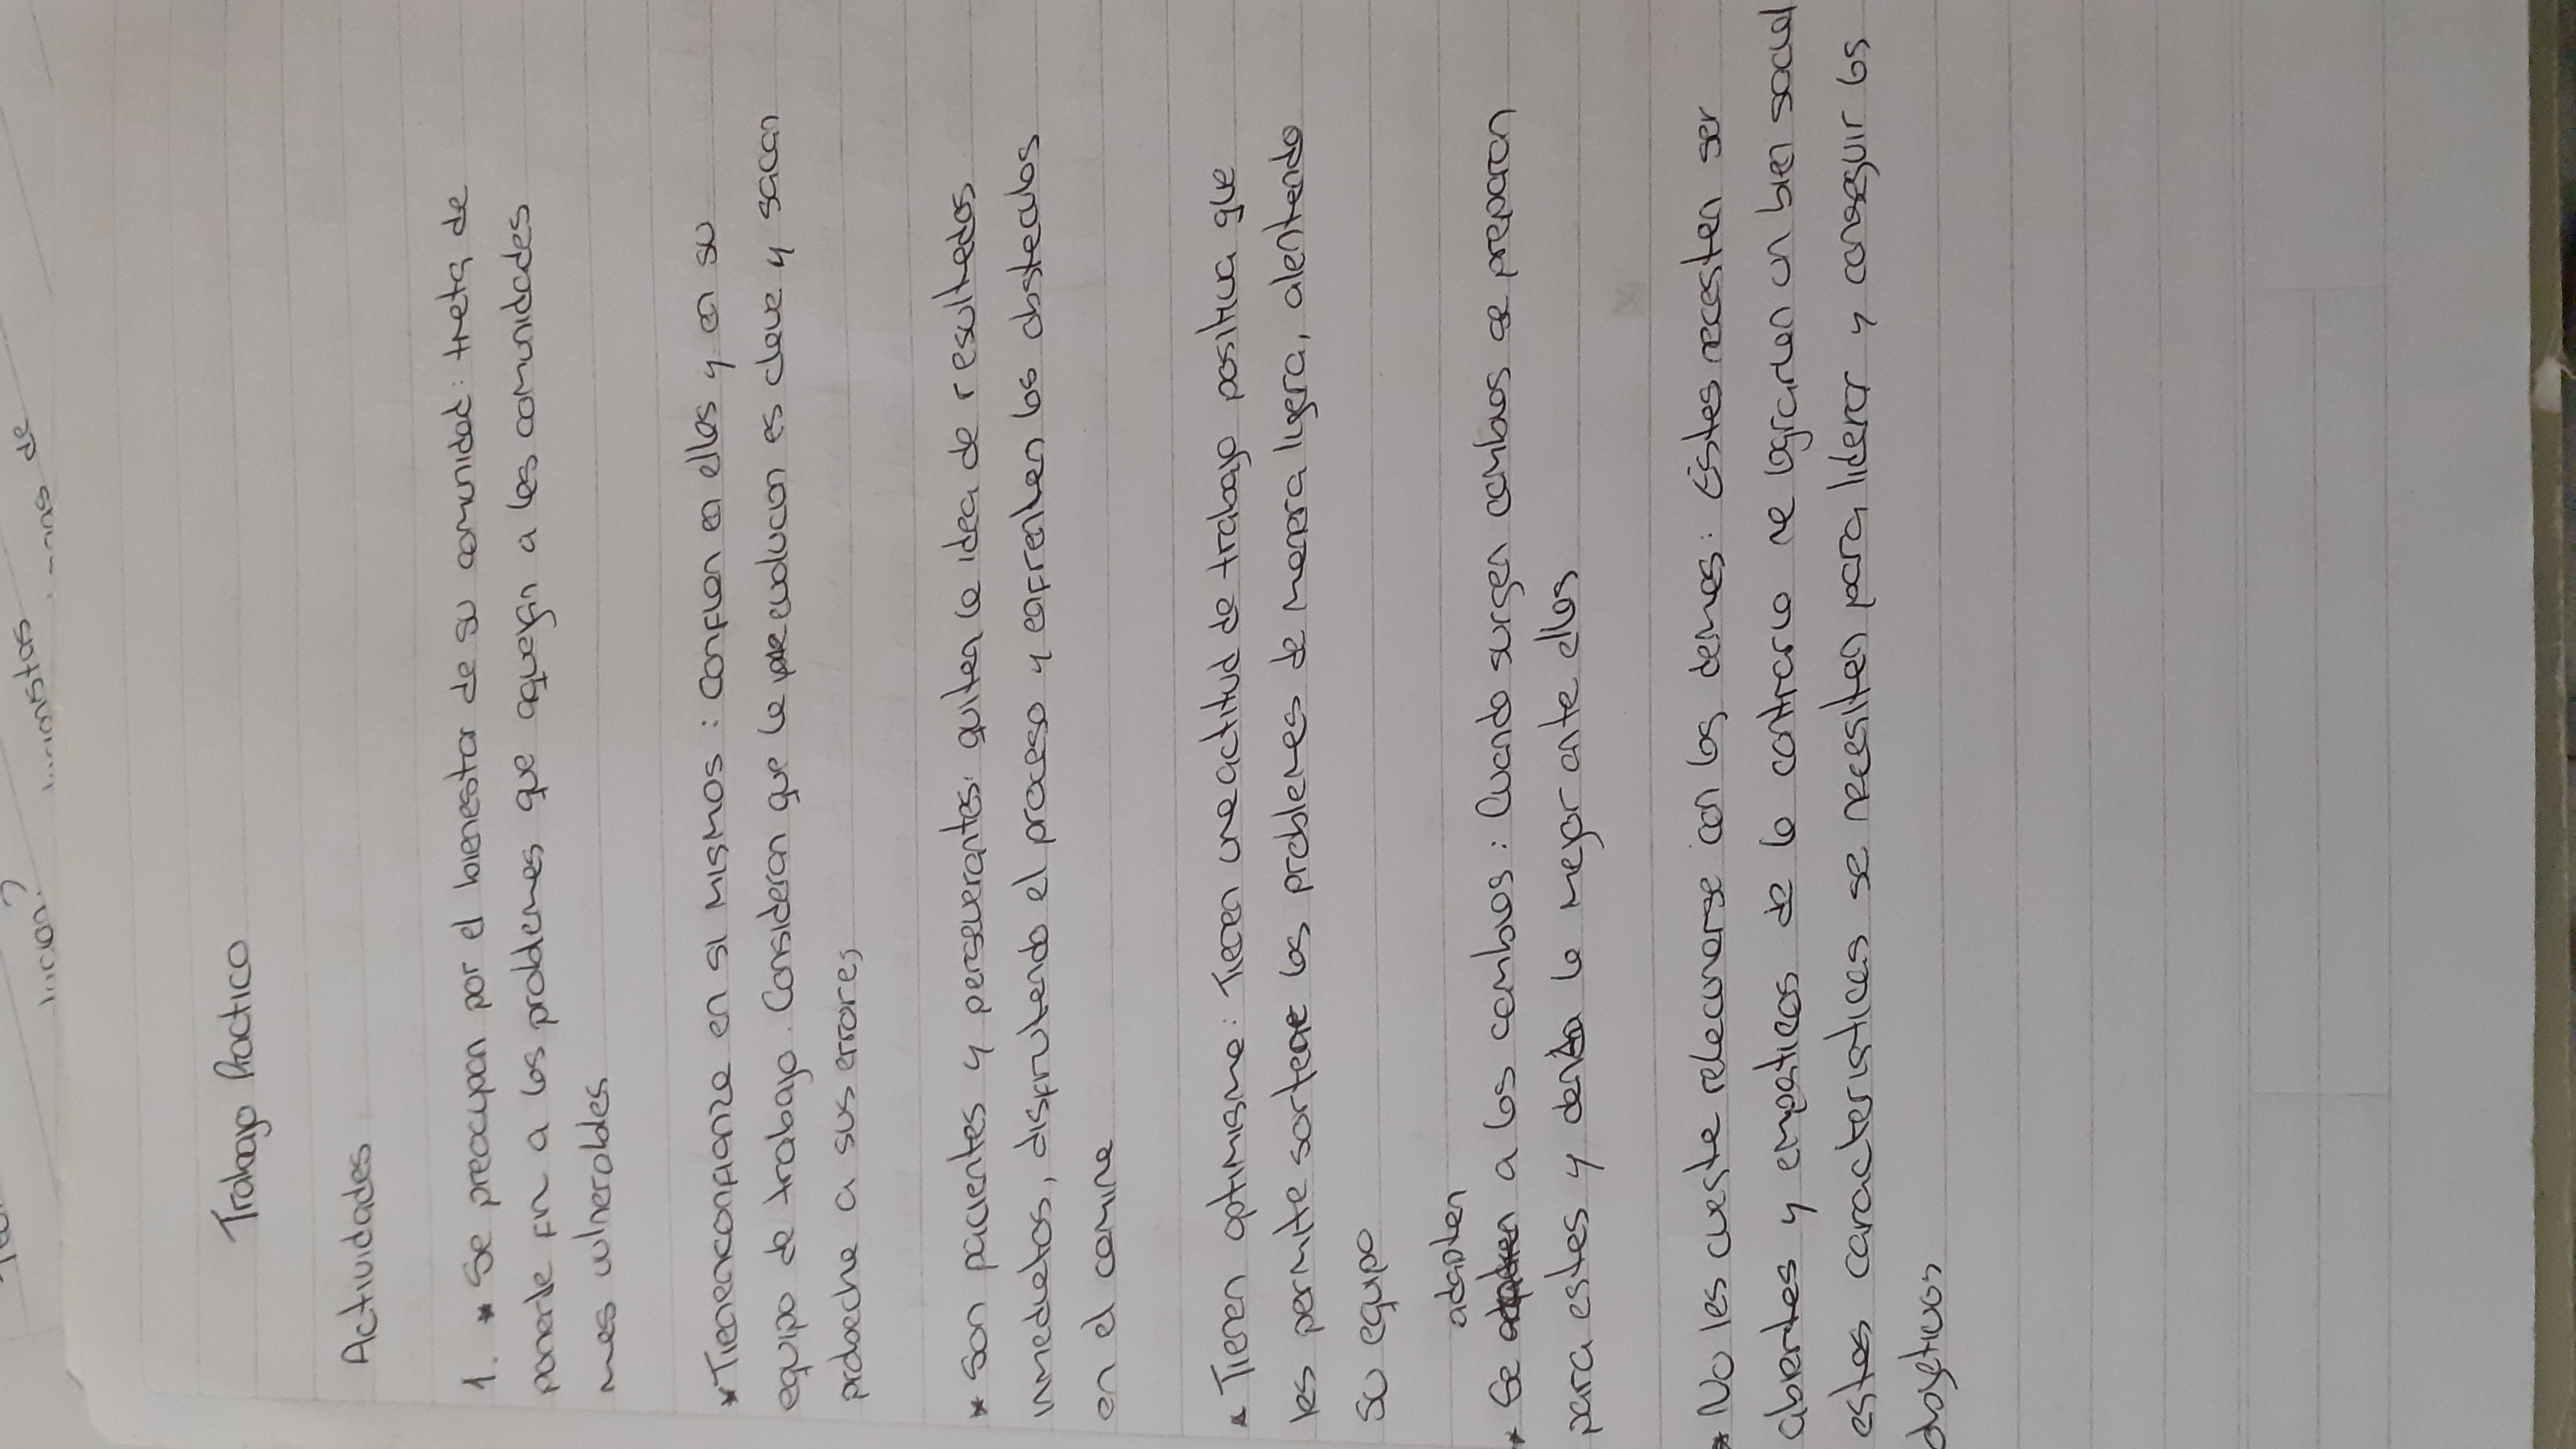 de
lición?
Trabajo Práctico
Actividades
1. * Se preocupan por el bienestar de su comunidad: treta de
ponerle fin a los problemes que aquejan a les comunidades
mes vulnerables
* Tienen confianze en si mismos: Confien en ellos y en su
equipo de trabajo. Consideran que le evolucion es cleve y sacan
probeche a sus errores
* Son pacientes y perseverantes: quiten le idea de resultedos
inmedietos, disfrutendo el proceso y enfrenten los obsteculos
en el camine
* Tienen optimisme: Tienen une actitud de trabajo positiva que
les permite sortear los problemes de menera ligera, alentendo
su equipo
* Se adapten a los cembios: Cuando surgen cambios se preparan
para estes y dendo lo mejor ante ellos
* No les cueste relecionerse con los demes: Estes necesiten ser
abiertes y empáticos de lo contrario ne lograrien un bien social
estas caracteristicas se necesiten para liderar y conseguir los
objetivos